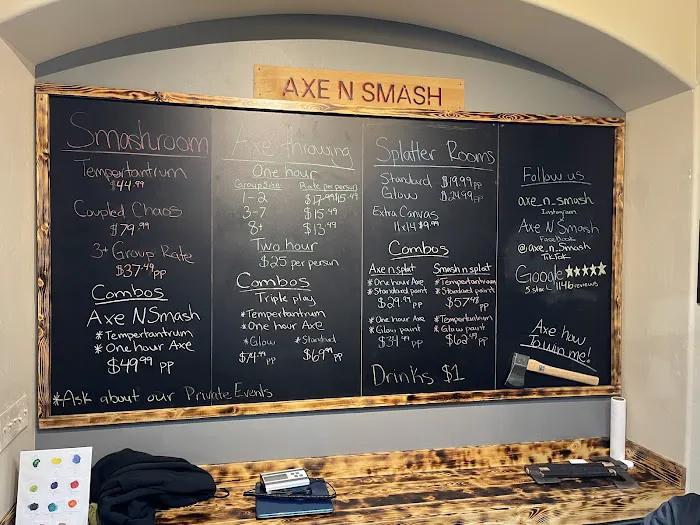 AXE N SMASH
Smashroom
Tempertantrum
$44.99
Coupled Chaos
$79.99
3+ Group Rate
$37.49 pp
Combos
Axe N Smash
*Tempertantrum
*One hour Axe
$49.99 pp
*Ask about our Private Events
Axe throwing
One hour
Group Size Rate per person
1-2
3-7 $15.49
8+ $13.49
Two hour
$25 per person
Combos
Triple play
*Tempertantrum
*One hour Axe
*Glow *Standard
$74.99 pp $69.99 pp
Splatter Rooms
Standard $19.99 pp
Glow $24.99 pp
Extra Canvas
11x14 $9.99
Combos
Axe n splat
*One hour Axe
*Standard paint
$29.99 pp
*One hour Axe
*Glow paint
$34.99 pp
Smash n splat
*Tempertantrum
*Standard paint
$57.98 pp
*Tempertantrum
*Glow paint
$62.49 pp
Drinks $1
Follow us
axe_n_smash
Instagram
Axe N Smash
FaceBook
@axe_n_smash
TikTok
Google ★★★★★
5 star 1146 reviews
Axe how
To win me!